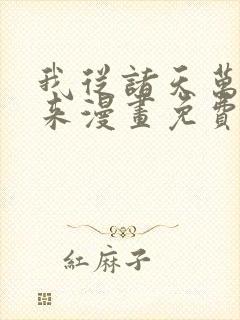 我從諸天萬
來漫畫免費
紅麻子